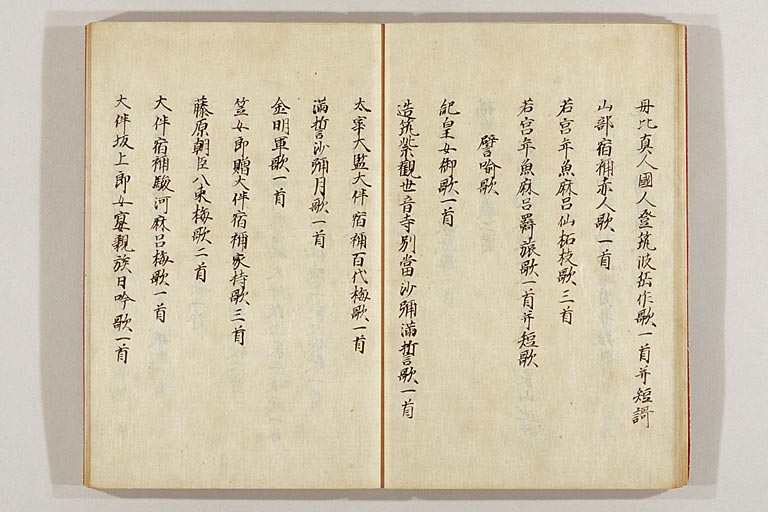 丹比真人國人登筑波岳作歌一首并短謌
山部宿祢赤人歌一首
若宮年魚麻呂仙柘枝歌三首
若宮年魚麻呂羇旅歌一首并短歌
譬喩歌
紀皇女御歌一首
造筑紫觀世音寺別當沙弥滿誓歌一首
太宰大監大伴宿祢百代梅歌一首
滿誓沙弥月歌一首
金明軍歌一首
笠女郎贈大伴宿祢家持歌三首
藤原朝臣八束梅歌二首
大伴宿祢駿河麻呂梅歌一首
大伴坂上郎女宴親族日吟歌一首